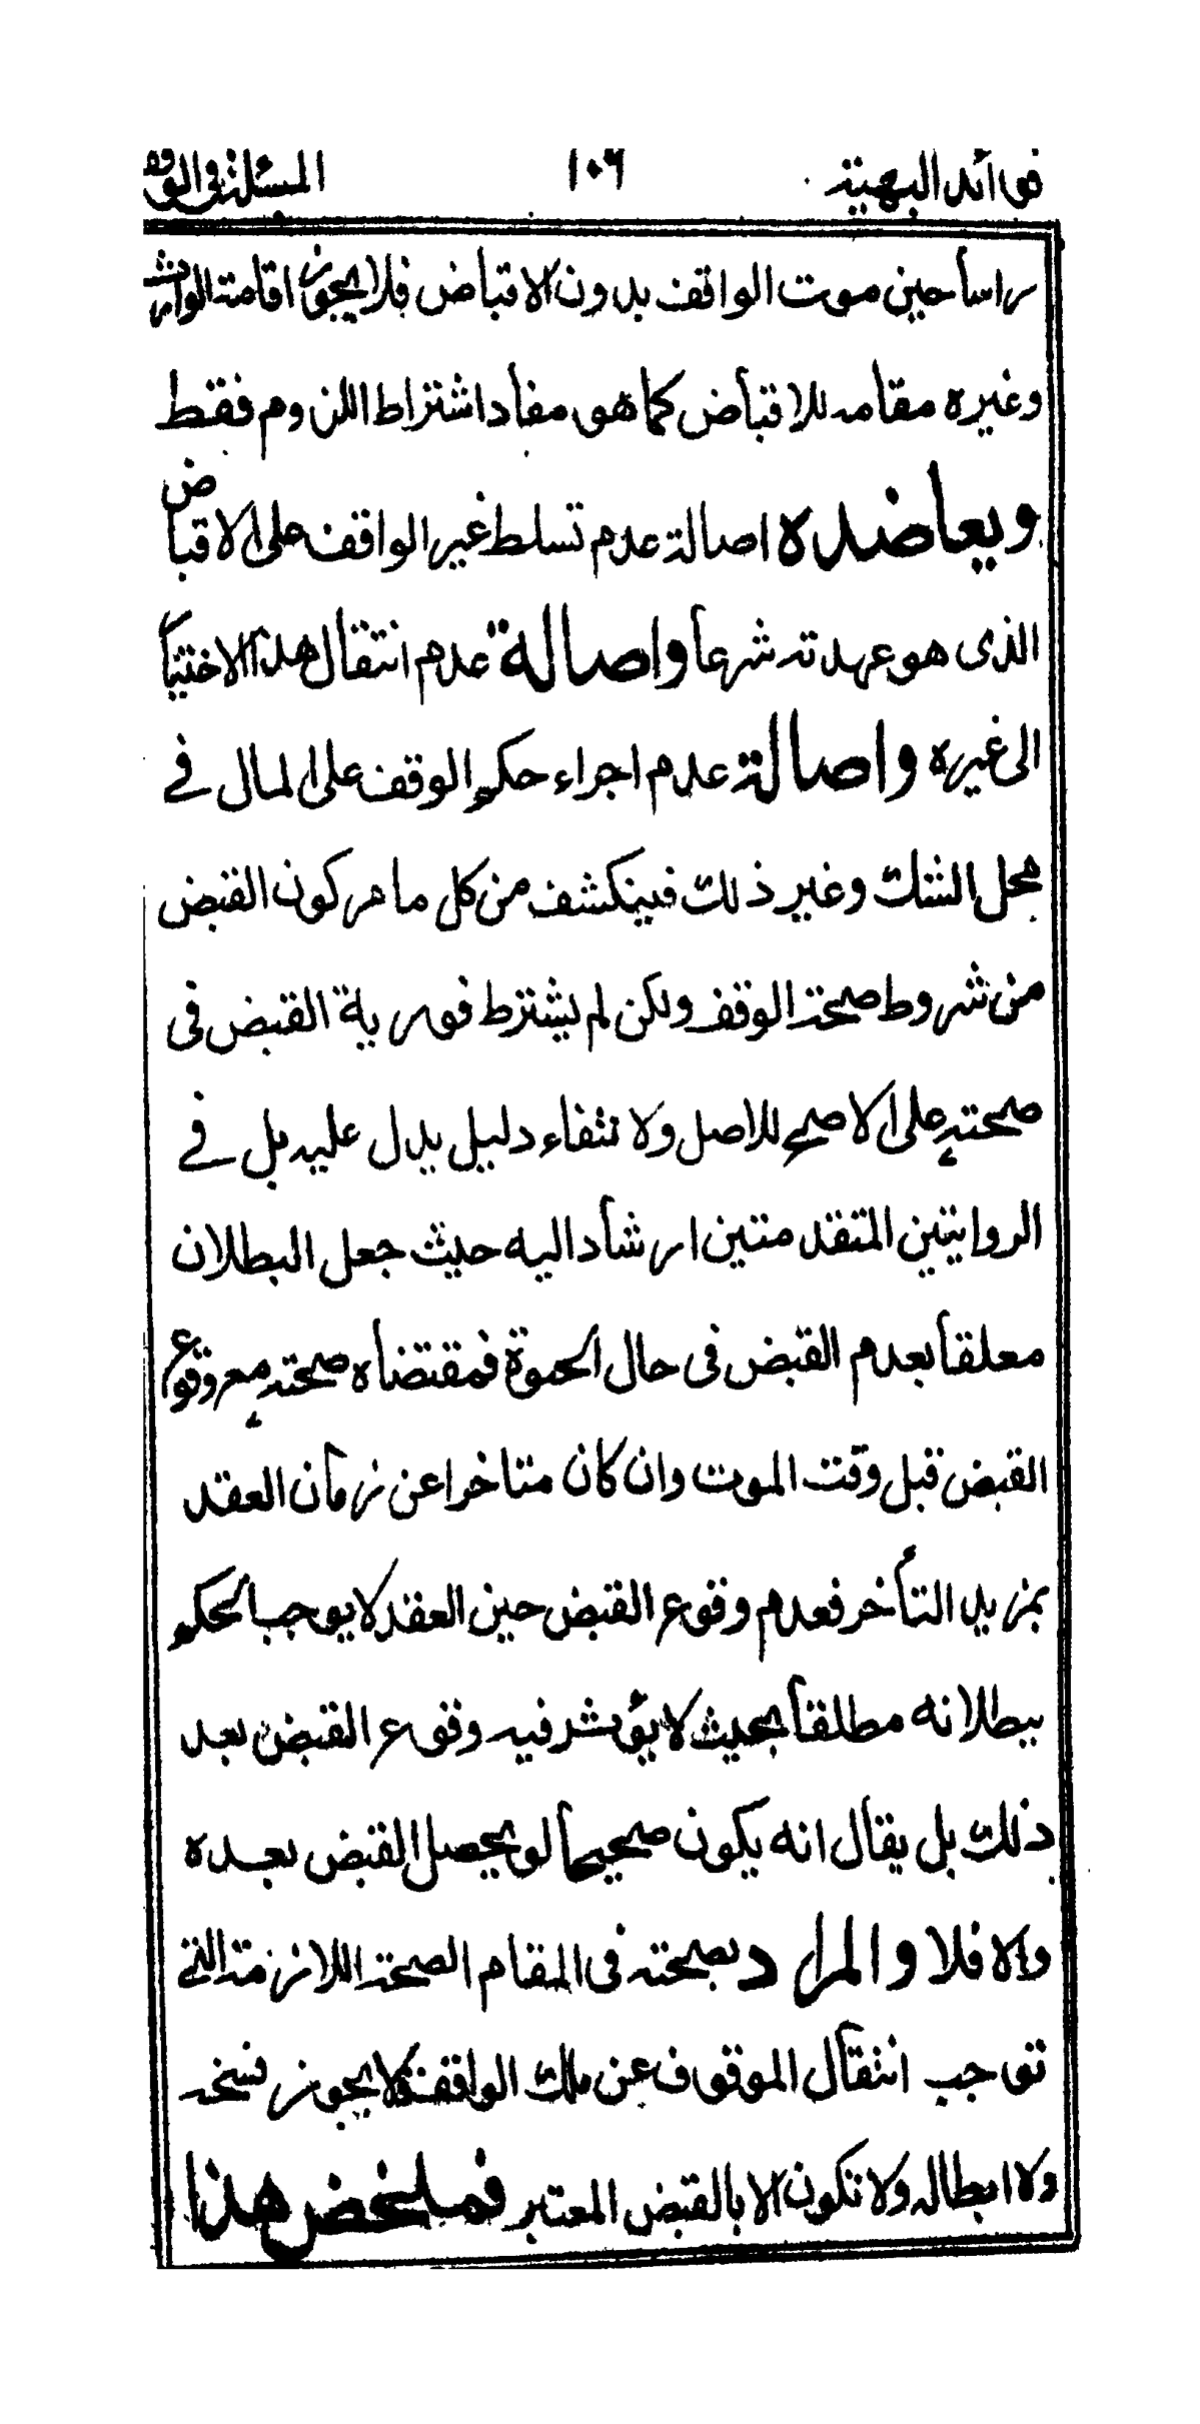 فوائد البهية ١٠٦ المسئلة فى الوقف
راساً حين موت الواقف بدون الاقباض فلا يجوز اقامة الوارث
وغيره مقامه للاقباض كما هو مفاد اشتراط اللزوم فقط
ويعاضده اصالة عدم تسلط غير الواقف على الاقباض
الذى هو عهدته شرعاً واصالة عدم انتقال هذا الاختيا
الى غيره واصالة عدم اجراء حكم الوقف على المال فے
محل الشك وغير ذلك فينكشف من كل ما مر كون القبض
من شروط صحة الوقف ولكن لم يشترط فورية القبض فى
صحته على الاصح للاصل ولانتفاء دليل يدل عليه بل فے
الروايتين المتقدمتين ارشاد اليه حيث جعل البطلان
معلقاً بعدم القبض فى حال الحيوة فمقتضاه صحته مع وقوع
القبض قبل وقت الموت وان كان متاخرا عن زمان العقد
بمزيد التأخر فعدم وقوع القبض حين العقد لا يوجب الحكم
ببطلانه مطلقاً بحيث لا يؤثر فيه وقوع القبض بعد
ذلك بل يقال انه يكون صحيحاً لو يحصل القبض بعده
والا فلا والمراد بصحته فى المقام الصحة اللازمة التى
توجب انتقال الموقوف عن ملك الواقف فلا يجوز فسخه
ولا ابطاله ولا تكون الا بالقبض المعتبر فملخص هذا